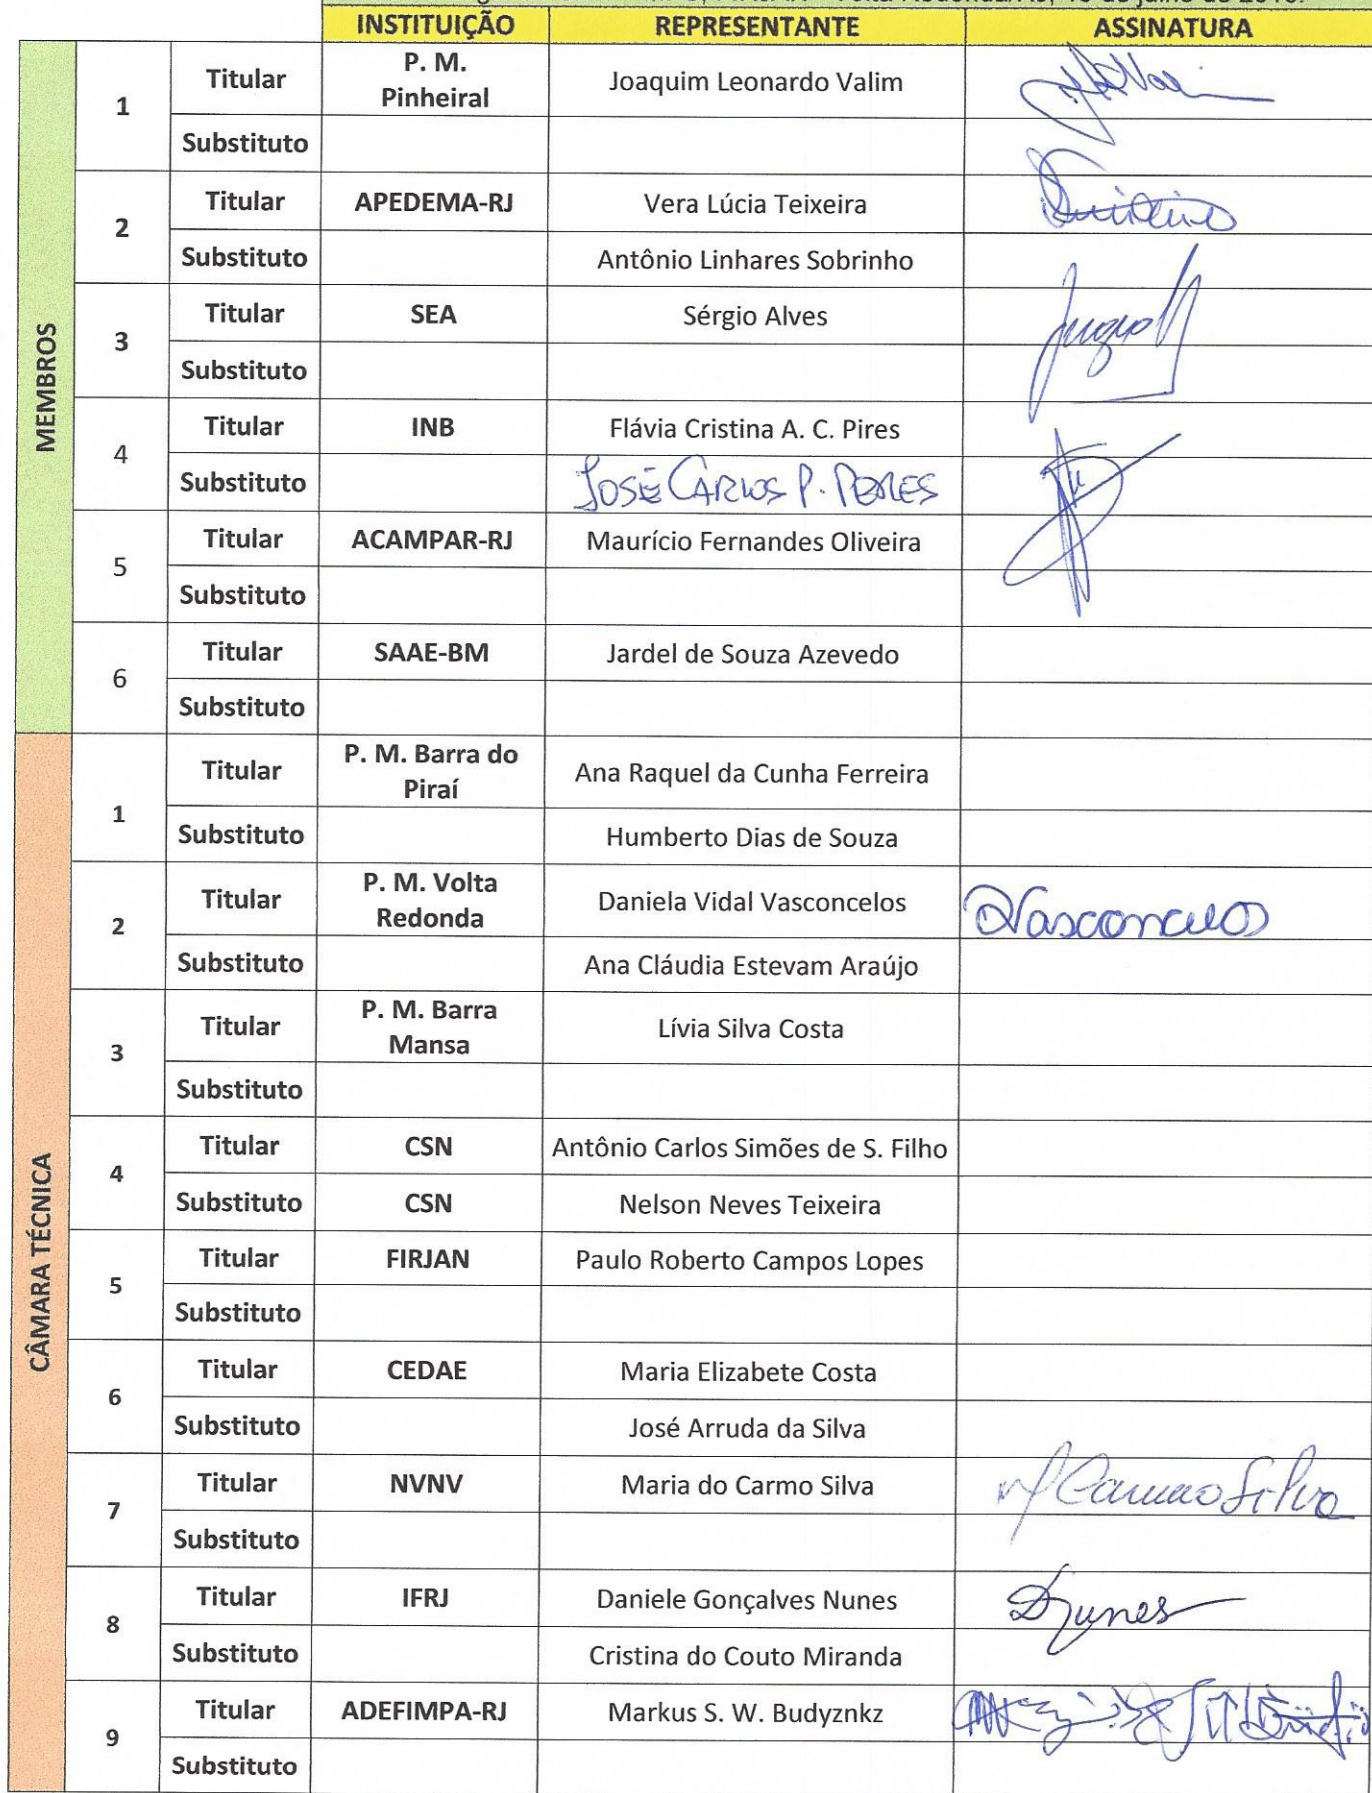 INSTITUIÇÃO REPRESENTANTE ASSINATURA
MEMBROS
1 Titular P. M. Pinheiral Joaquim Leonardo Valim
Substituto
2 Titular APEDEMA-RJ Vera Lúcia Teixeira
Substituto Antônio Linhares Sobrinho
3 Titular SEA Sérgio Alves
Substituto
4 Titular INB Flávia Cristina A. C. Pires
Substituto JOSÉ CARLOS P. PERES
5 Titular ACAMPAR-RJ Maurício Fernandes Oliveira
Substituto
6 Titular SAAE-BM Jardel de Souza Azevedo
Substituto
CÂMARA TÉCNICA
1 Titular P. M. Barra do Piraí Ana Raquel da Cunha Ferreira
Substituto Humberto Dias de Souza
2 Titular P. M. Volta Redonda Daniela Vidal Vasconcelos DVasconcelos
Substituto Ana Cláudia Estevam Araújo
3 Titular P. M. Barra Mansa Lívia Silva Costa
Substituto
4 Titular CSN Antônio Carlos Simões de S. Filho
Substituto CSN Nelson Neves Teixeira
5 Titular FIRJAN Paulo Roberto Campos Lopes
Substituto
6 Titular CEDAE Maria Elizabete Costa
Substituto José Arruda da Silva
7 Titular NVNV Maria do Carmo Silva M Carmo Silva
Substituto
8 Titular IFRJ Daniele Gonçalves Nunes DNunes
Substituto Cristina do Couto Miranda
9 Titular ADEFIMPA-RJ Markus S. W. Budyznkz
Substituto